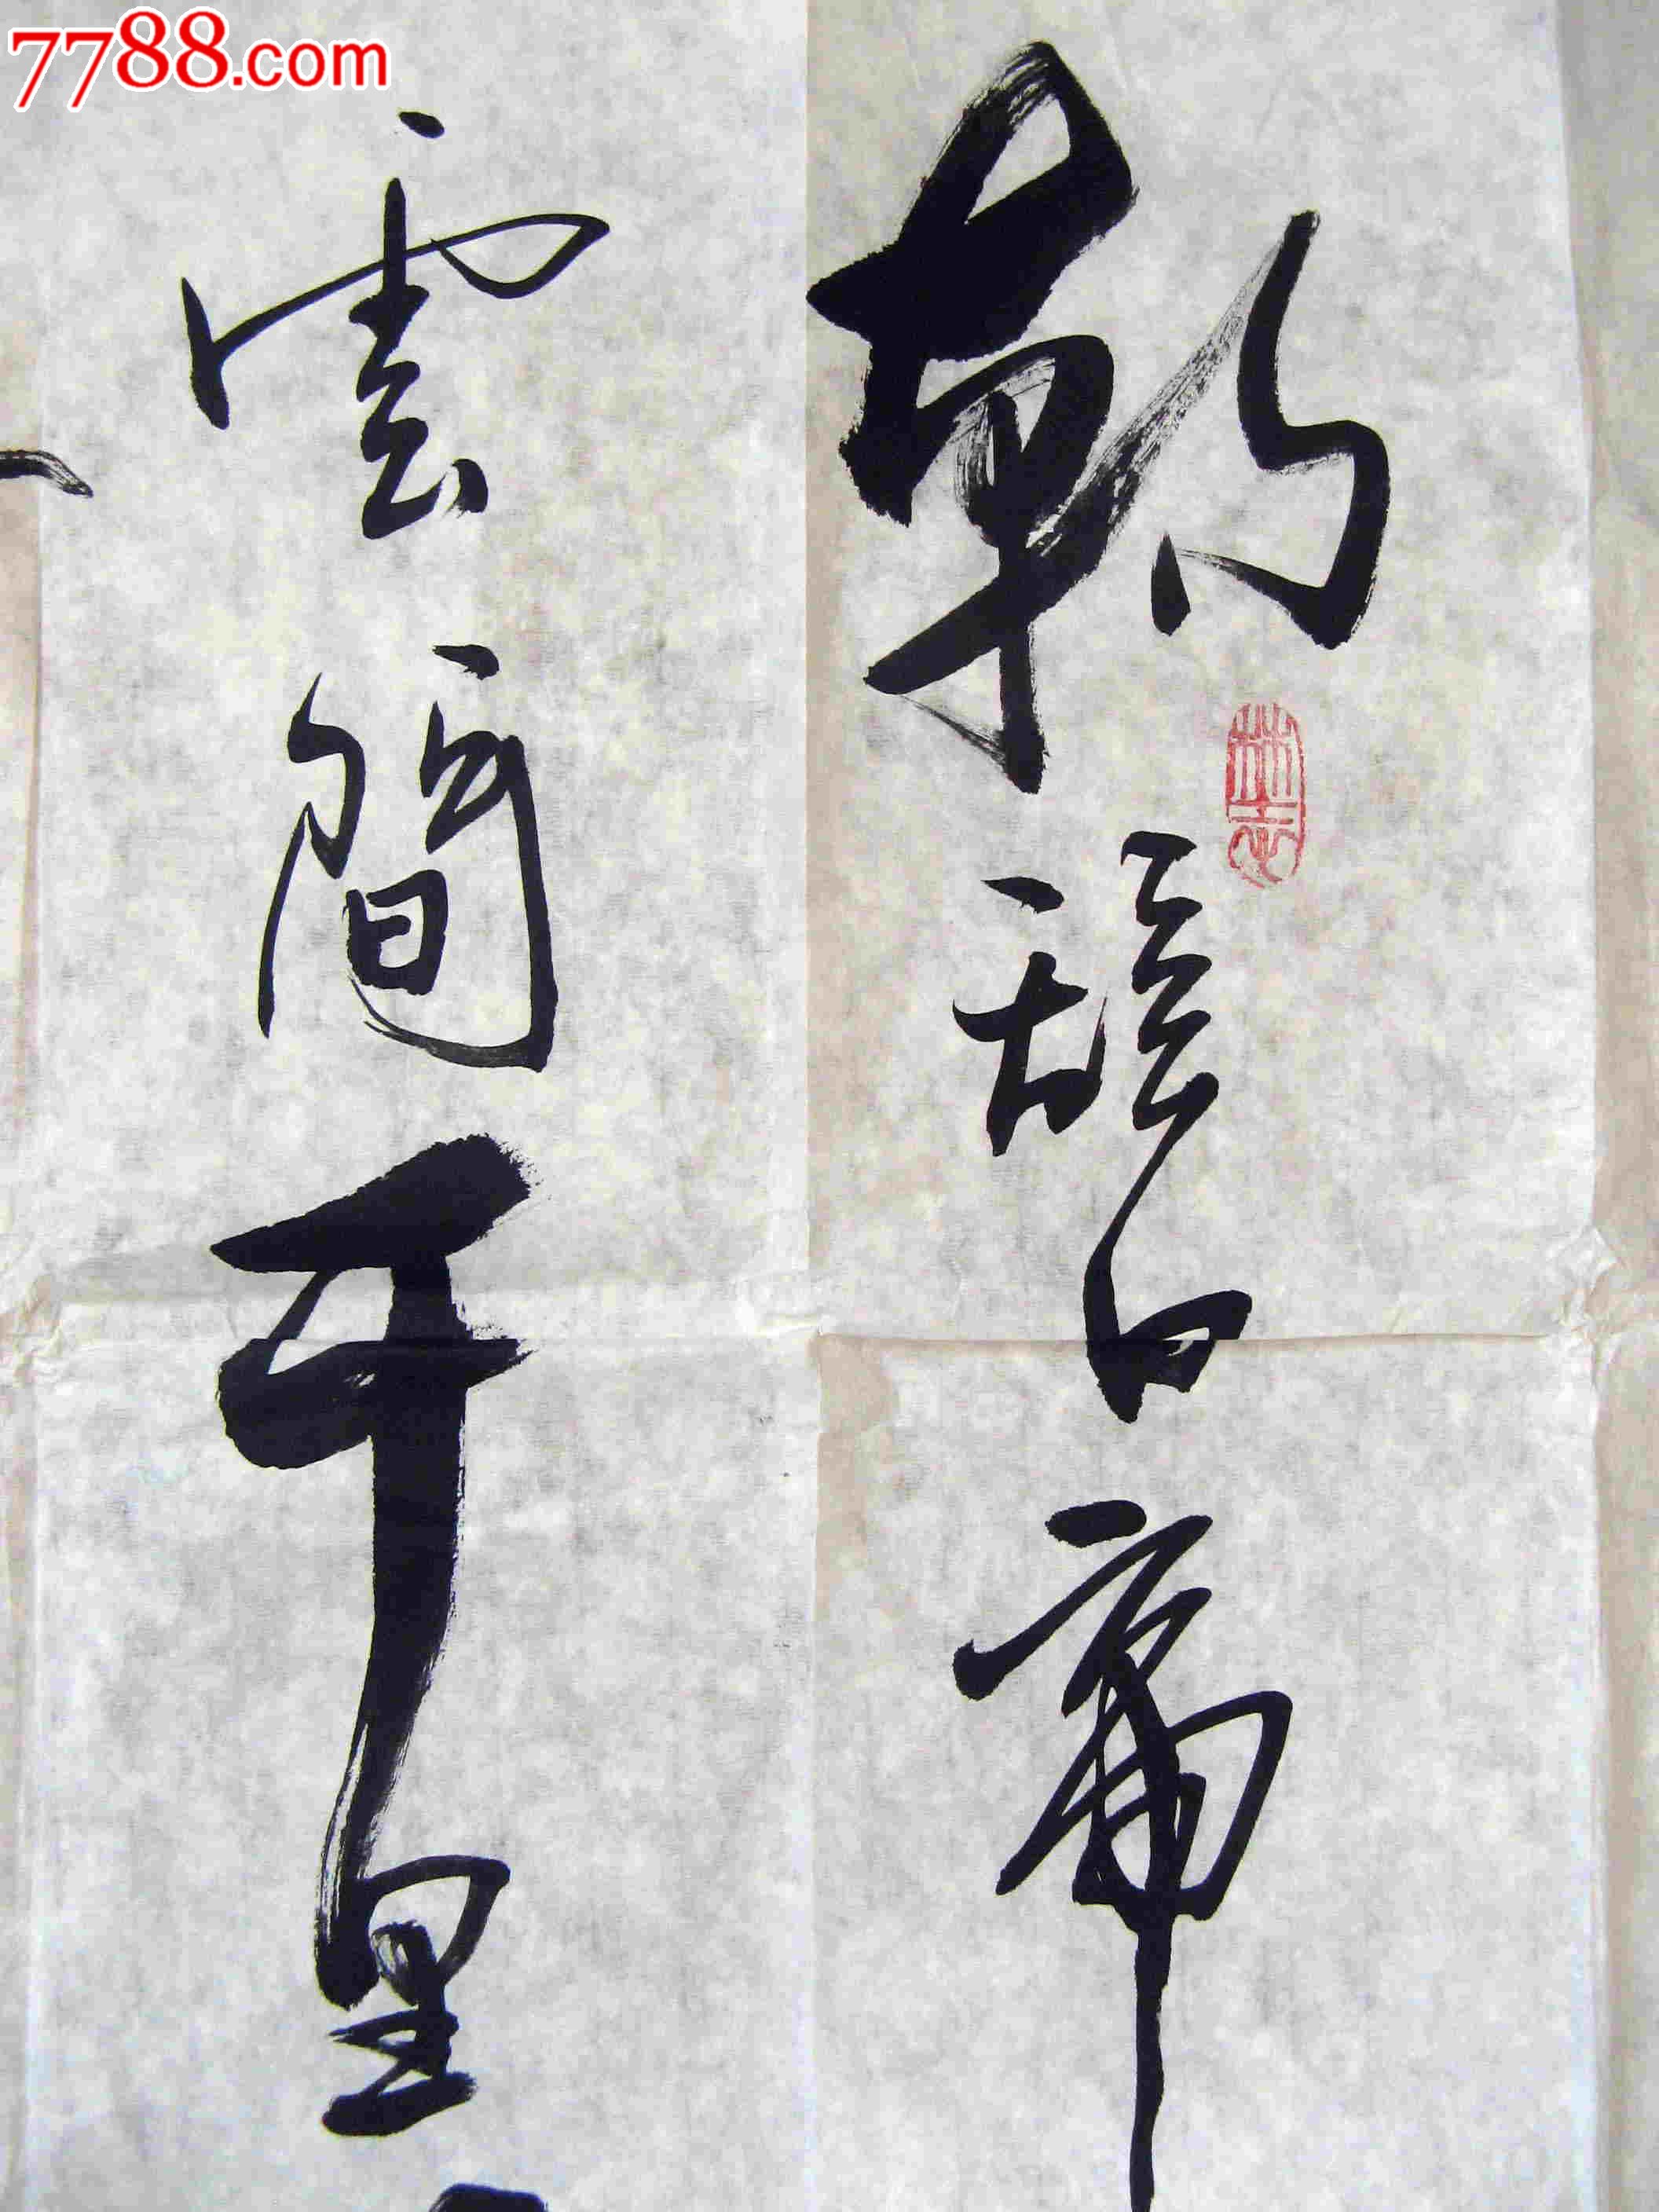 7788.com
朝辞白帝
雲间千里